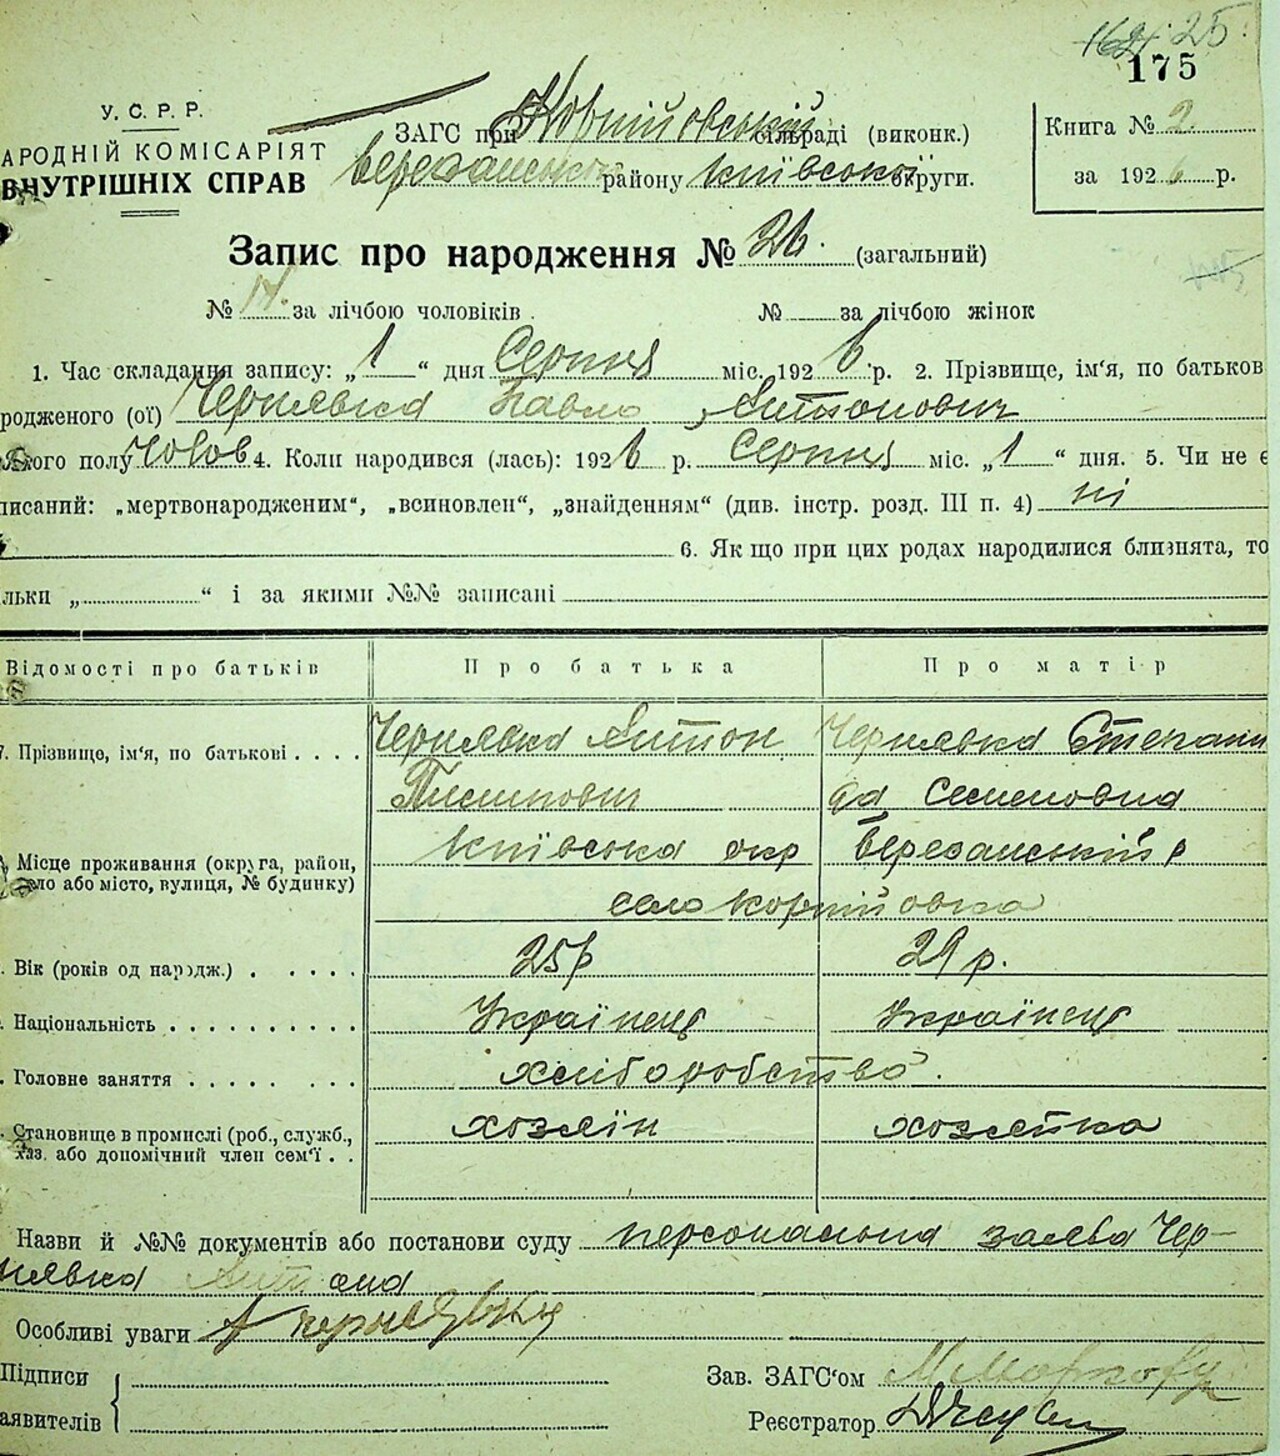 25
175
У. С. Р. Р.
АРОДНІЙ КОМІСАРІЯТ
ВНУТРІШНІХ СПРАВ
ЗАГС при Корнійовський сільраді (виконк.)
Березанськ району київської округи.
Книга № 2
за 1926 р.
Запис про народження № 26. (загальний)
№ 14. за лічбою чоловіків . № за лічбою жінок
1. Час складання запису: „1“ дня Серпня міс. 1926 р. 2. Прізвище, ім'я, по батьков
родженого (ої) Чернявка Павло Антонович
якого полу Чолов 4. Коли народився (лась): 1926 р. Серпня міс. „1“ дня. 5. Чи не є
писаний: „мертвонародженим“, „всиновлен“, „знайденням“ (див. інстр. розд. III п. 4) ні
6. Як що при цих родах народилися близнята, то
льки „ “ і за якими №№ записані
Відомості про батьків Про батька Про матір
7. Прізвище, ім'я, по батькові . . . . Чернявка Антон Чернявка Степани
Пилипович да Семеновна
Місце проживання (округа, район, київська окр Березанський р
село або місто, вулиця, № будинку)
село Корнійовка
. Вік (років од народж.) . . . . . 25 р 29 р.
. Національність . . . . . . . . . . Українець Українець
. Головне заняття . . . . . . . . хліборобство.
Становище в промислі (роб., служб., хозяїн хозяйка
хаз. або допомічний член сем'ї . .
Назви й №№ документів або постанови суду персональна заява Чер-
нявка Антона
Особливі уваги А Чернявка
Підписи
аявителів
Зав. ЗАГС'ом
Реєстратор